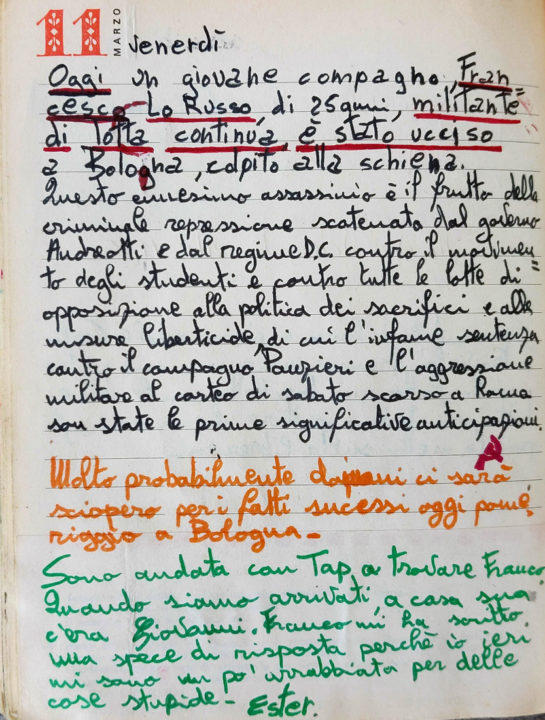 11 MARZO venerdì
Oggi un giovane compagno, Fran
cesco Lo Russo, di 25 anni, militante
di lotta continua, è stato ucciso
a Bologna, colpito alla schiena.
Questo ennesimo assassinio è il frutto della
criminale repressione scatenata dal governo
Andreotti e dal regime D.C. contro il movimen=
to degli studenti e contro tutte le lotte di
opposizione alla politica dei sacrifici e alle
misure liberticide, di cui l'infame sentenza
contro il compagno Panzieri e l'aggressione
militare al corteo di sabato scorso a Roma
son state le prime significative anticipazioni.
A
Molto probabilmente domani ci sarà
sciopero per i fatti successi oggi pome
riggio a Bologna -
Sono andata con Tap, a trovare Franco,
Quando siamo arrivati, a casa sua
c'era Giovanni. Franco mi ha scritto
una spece di risposta perché io ieri
mi sono un po' arrabbiata per delle
cose stupide - Ester.